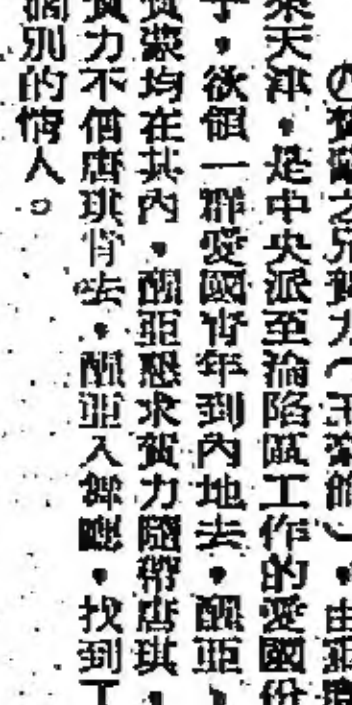 四賀蒙之兄賀力（王豪飾），由重慶
來天津，是中央派至淪陷區工作的愛國份
子，欲領一群愛國青年到內地去，醒亞、
賀蒙均在其內，醒亞懇求賀力隨帶唐琪，
賀力不信唐琪肯去，醒亞入舞廳，找到了
個別的情人。